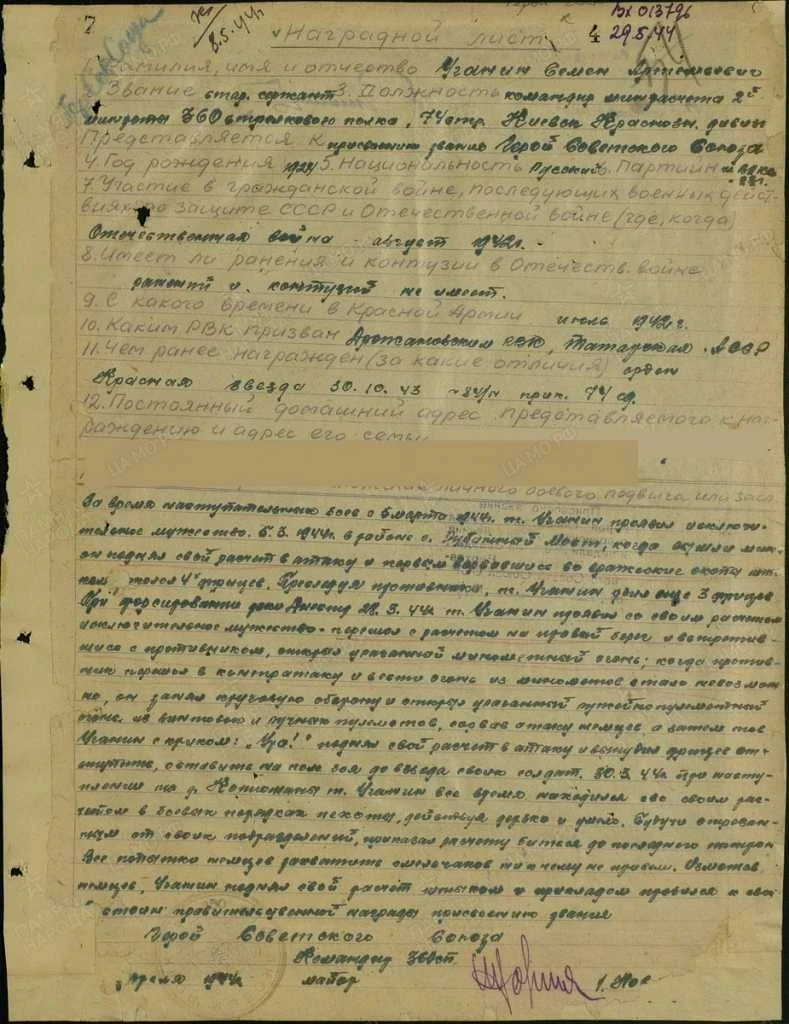 7
8.5.44г
4
Вх 013796
29.5.44
Наградной лист
Фамилия, имя и отчество Уганин Семен Артемьевич
Звание стар. сержант 3. Должность командир минрасчета 2й
минроты 360 стрелкового полка, 74 стр. Киевск. Краснозн. дивиз
Представляется к присвоению звания Герой Советского Союза
4. Год рождения 1924 5. Национальность Русский 6. Партийн
7. Участие в гражданской войне, последующих военных дейст-
виях по защите СССР и Отечественной войне (где, когда)
Отечественная война - август 1942г. -
8. Имеет ли ранения и контузии в Отечеств. войне
ранений и контузий не имеет.
9. С какого времени в Красной Армии июль 1942г.
10. Каким РВК призван Дрожановским РВК, Татарская АССР
11. Чем ранее награжден (за какие отличия) орден
Красная звезда 30.10.43 прик. 74 сд.
12. Постоянный домашний адрес представляемого к наг-
раждению и адрес его семьи
личного боевого подвига или засл
За время наступательных боев с 6 марта 1944г. т. Уганин проявил исключи-
тельное мужество. 6.3.1944г. в районе с. Рубанный Мост, когда
он поднял свой расчет в атаку и первым ворвавшись во вражеские окопы шт-
ком 4х фрицев. Преследуя противника, т. Уганин убил еще 3 фрицев
При форсировании реки Днестр 28.3.44г. т. Уганин проявил со своим расчетом
исключительное мужество. перешел с расчетом на правый берег и встретив-
шись с противником, открыл ураганный минометный огонь; когда против-
ник перешел в контратаку и вести огонь из минометов стало невозмож
но, он занял круговую оборону и открыл ураганный ружейно пулеметный
огонь из винтовок и ручных пулеметов, сорвав атаку немцев, а затем тов
Уганин с криком: "Ура!" поднял свой расчет в атаку и вынудил фрицев от-
ступить, оставить на поле боя до взвода своих солдат. 30.3.44г. при насту-
плении на д. т. Уганин все время находился со своим рас-
четом в боевых порядках пехоты, действуя дерзко и умело. Будучи отрезан-
ным от своих подразделений, приказал расчету биться до последнего патрона
Все попытки немцев захватить смельчаков ни к чему не привели. Измотав
немцев, Уганин поднял свой расчет штыком и прикладом пробился к свои
достоин правительственной награды присвоению звания
Герой Советского Союза
Командир 360 сп
апреля 1944г. майор